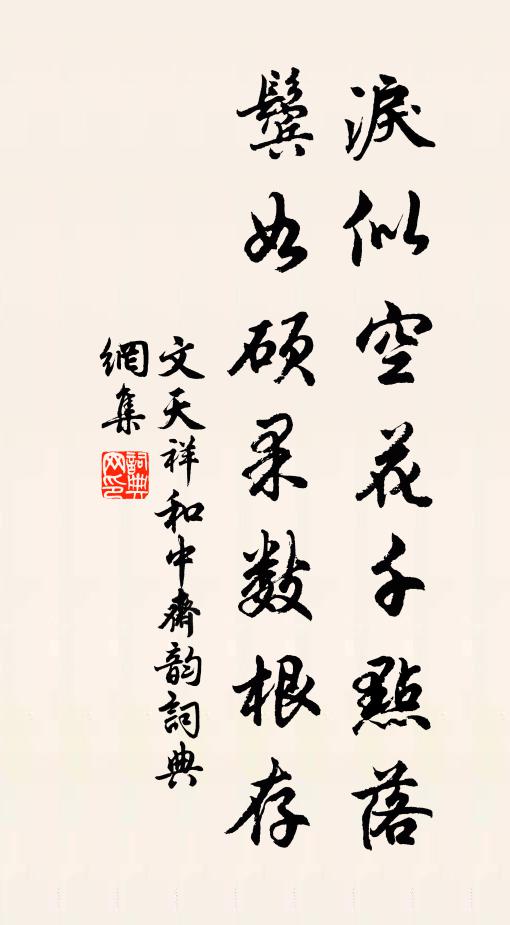 淚似空花千點落
鬢如碩果數根存
文天祥和中齋韵詞典
網集
詞典
网印